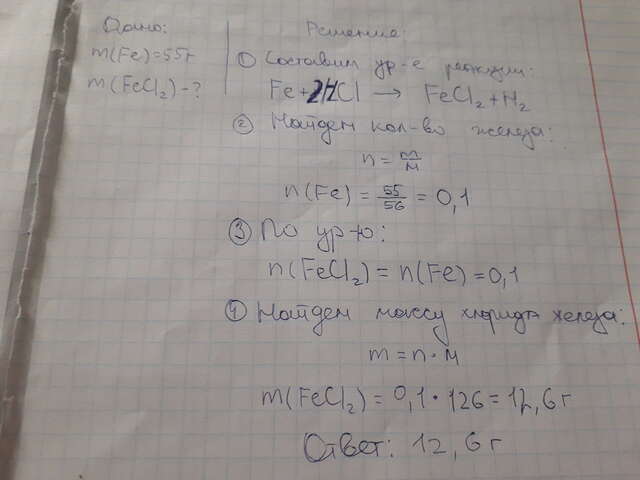 Дано:
m(Fe)=55г
m(FeCl₂)-?
Решение:
① Составим ур-е реакции:
Fe+2HCl → FeCl₂+H₂
② Найдем кол-во железа:
n=m/M
n(Fe)=55/56=0,1
③ По ур-ю:
n(FeCl₂)=n(Fe)=0,1
④ Найдем массу хлорида железа:
m=n·M
m(FeCl₂)=0,1·126=12,6г
Ответ: 12,6г